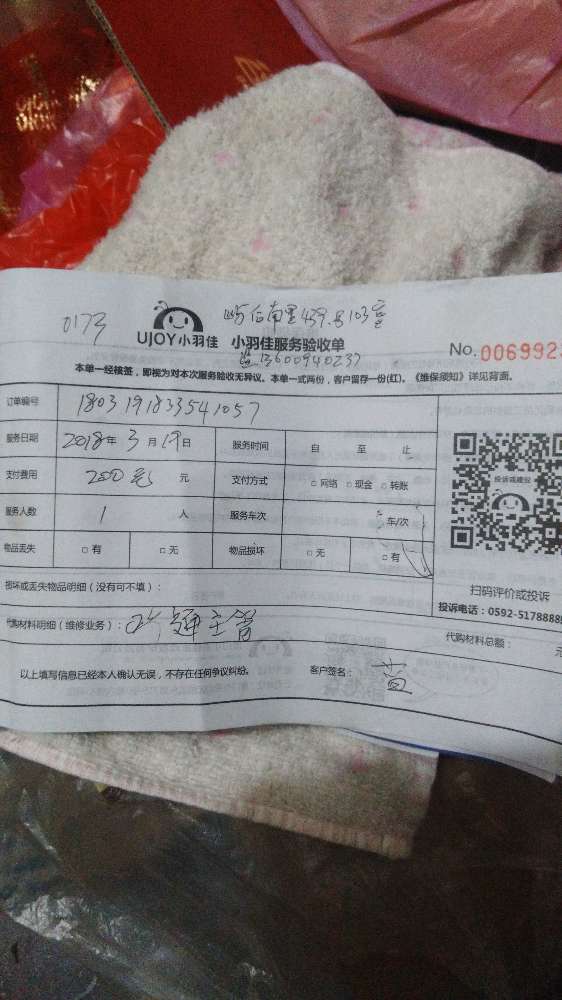 0173
屿后南里439号103室
UJOY小羽佳 小羽佳服务验收单
13600940237
No. 006992
本单一经核签，即视为对本次服务验收无异议。本单一式两份，客户留存一份(红)。《维保须知》详见背面。
订单编号 1803191833541057
服务日期 2018年3月19日 服务时间 自 至 止
支付费用 200元 元 支付方式 □网络 □现金 □转账
服务人数 1 人 服务车次 车/次
物品丢失 □有 □无 物品损坏 □无 □有
投诉或建议
扫码评价或投诉
投诉电话：0592-5178888
损坏或丢失物品明细（没有可不填）：
代购材料明细（维修业务）： 主管 代购材料总额： 元
以上填写信息已经本人确认无误，不存在任何争议纠纷。 客户签名：